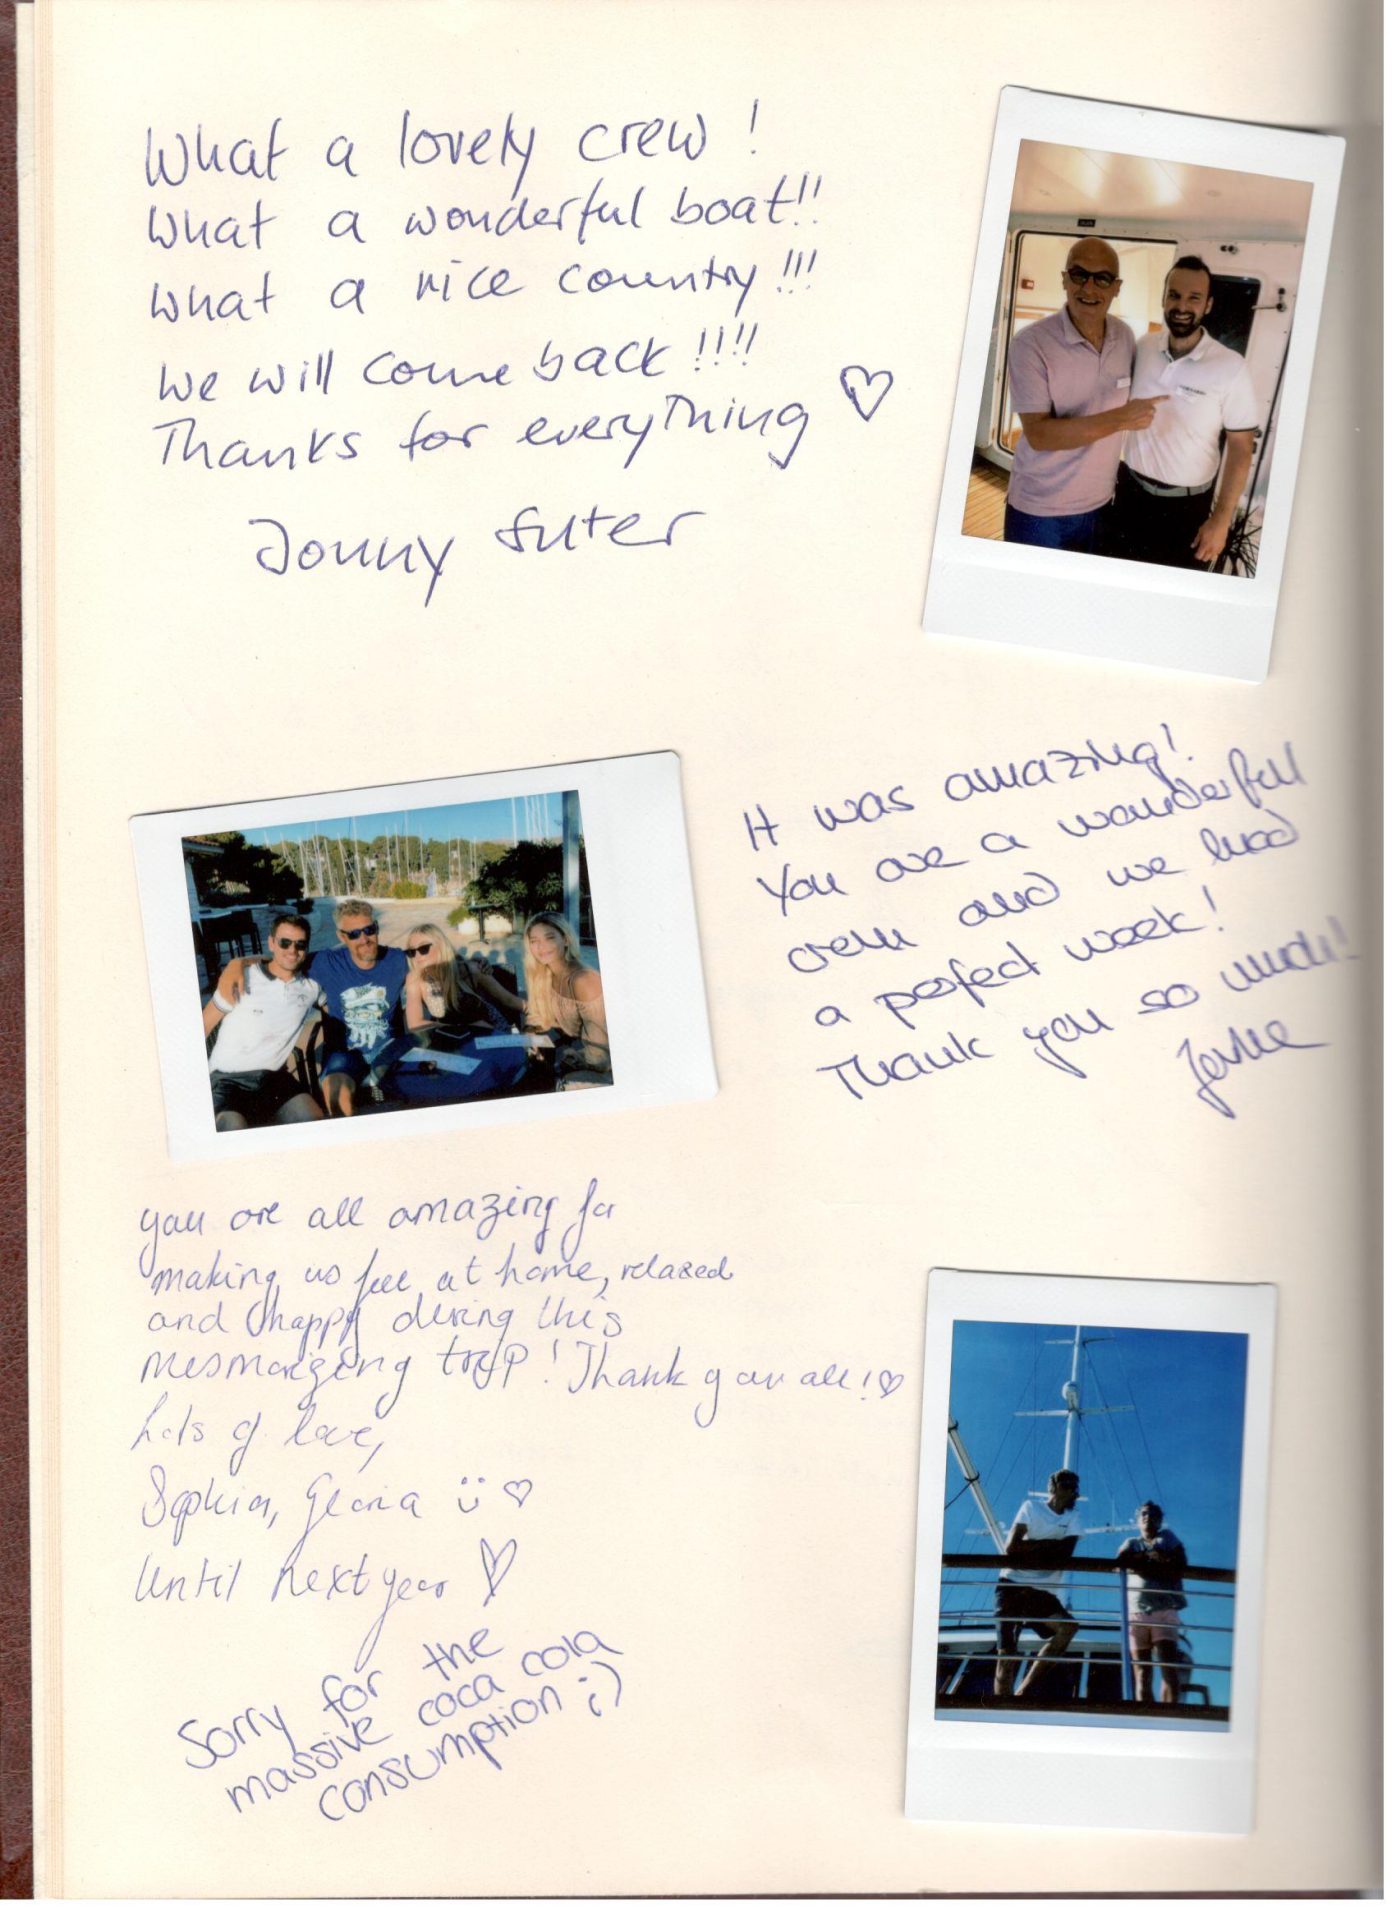 What a lovely crew!
What a wonderful boat!!
What a nice country!!!
We will come back!!!!
Thanks for everything ♡
Jonny Suter
It was amazing!
You are a wonderfull
crew and we had
a perfect week!
Thank you so much!
you are all amazing for
making us feel at home, relaxed
and happy during this
mesmorizing trip! Thank you all! ♡
lots of love,
Sophia, Gloria ü ♡
Until next year ♡
Sorry for the
massive coca cola
consumption ;)